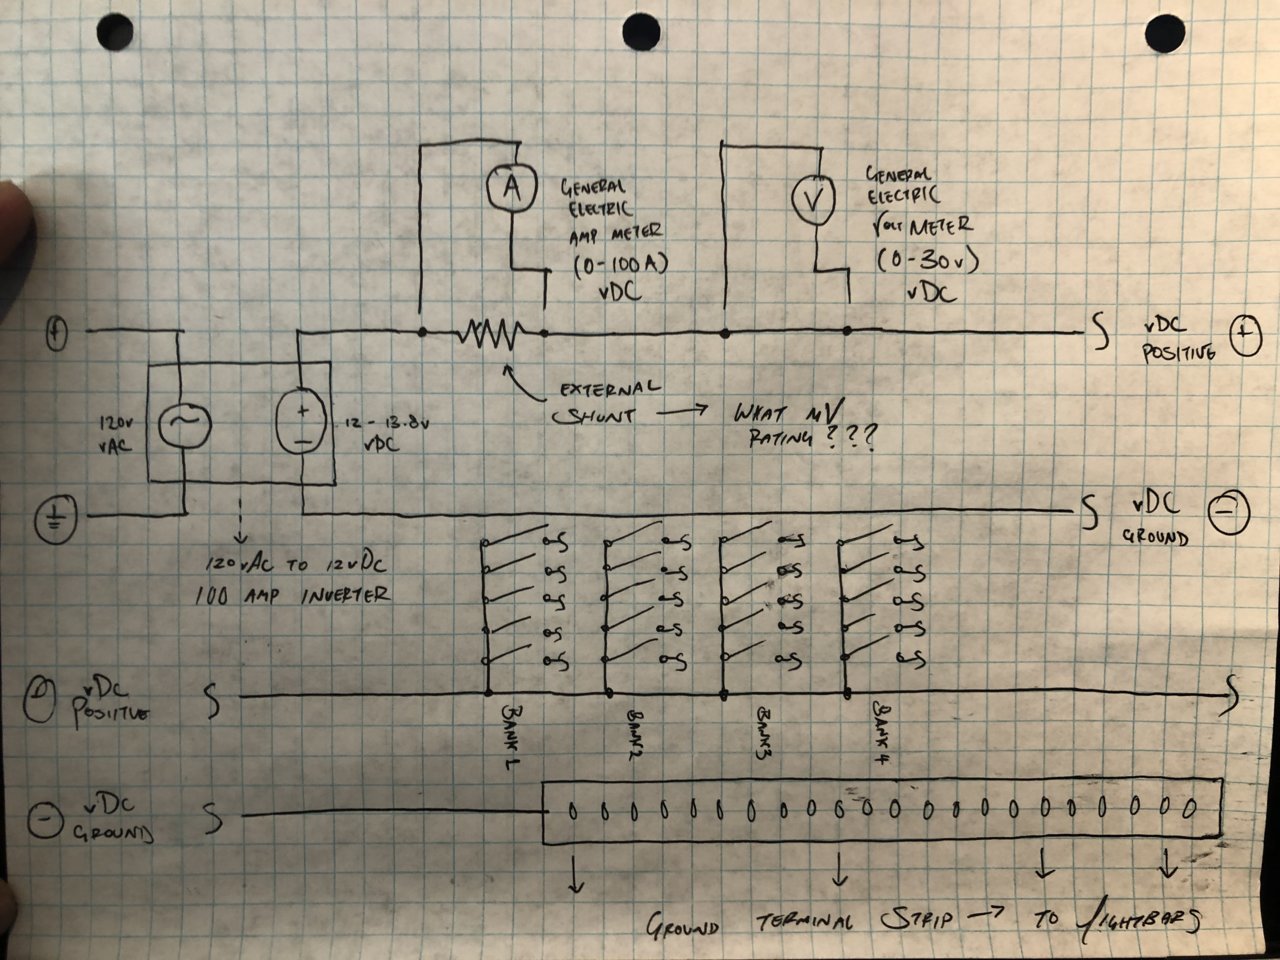 A
GENERAL
ELECTRIC
AMP METER
(0-100A)
vDC
V
GENERAL
ELECTRIC
VOLT METER
(0-30v)
vDC
+
vDC
POSITIVE +
EXTERNAL
SHUNT → WHAT MV
RATING ???
120v
vAC
+
−
12-13.8v
vDC
vDC −
GROUND
120vAC TO 12vDC
100 AMP INVERTER
vDC
POSITIVE
BANK 1
BANK 2
BANK 3
BANK 4
− vDC
GROUND
GROUND TERMINAL STRIP → TO LIGHTBARS